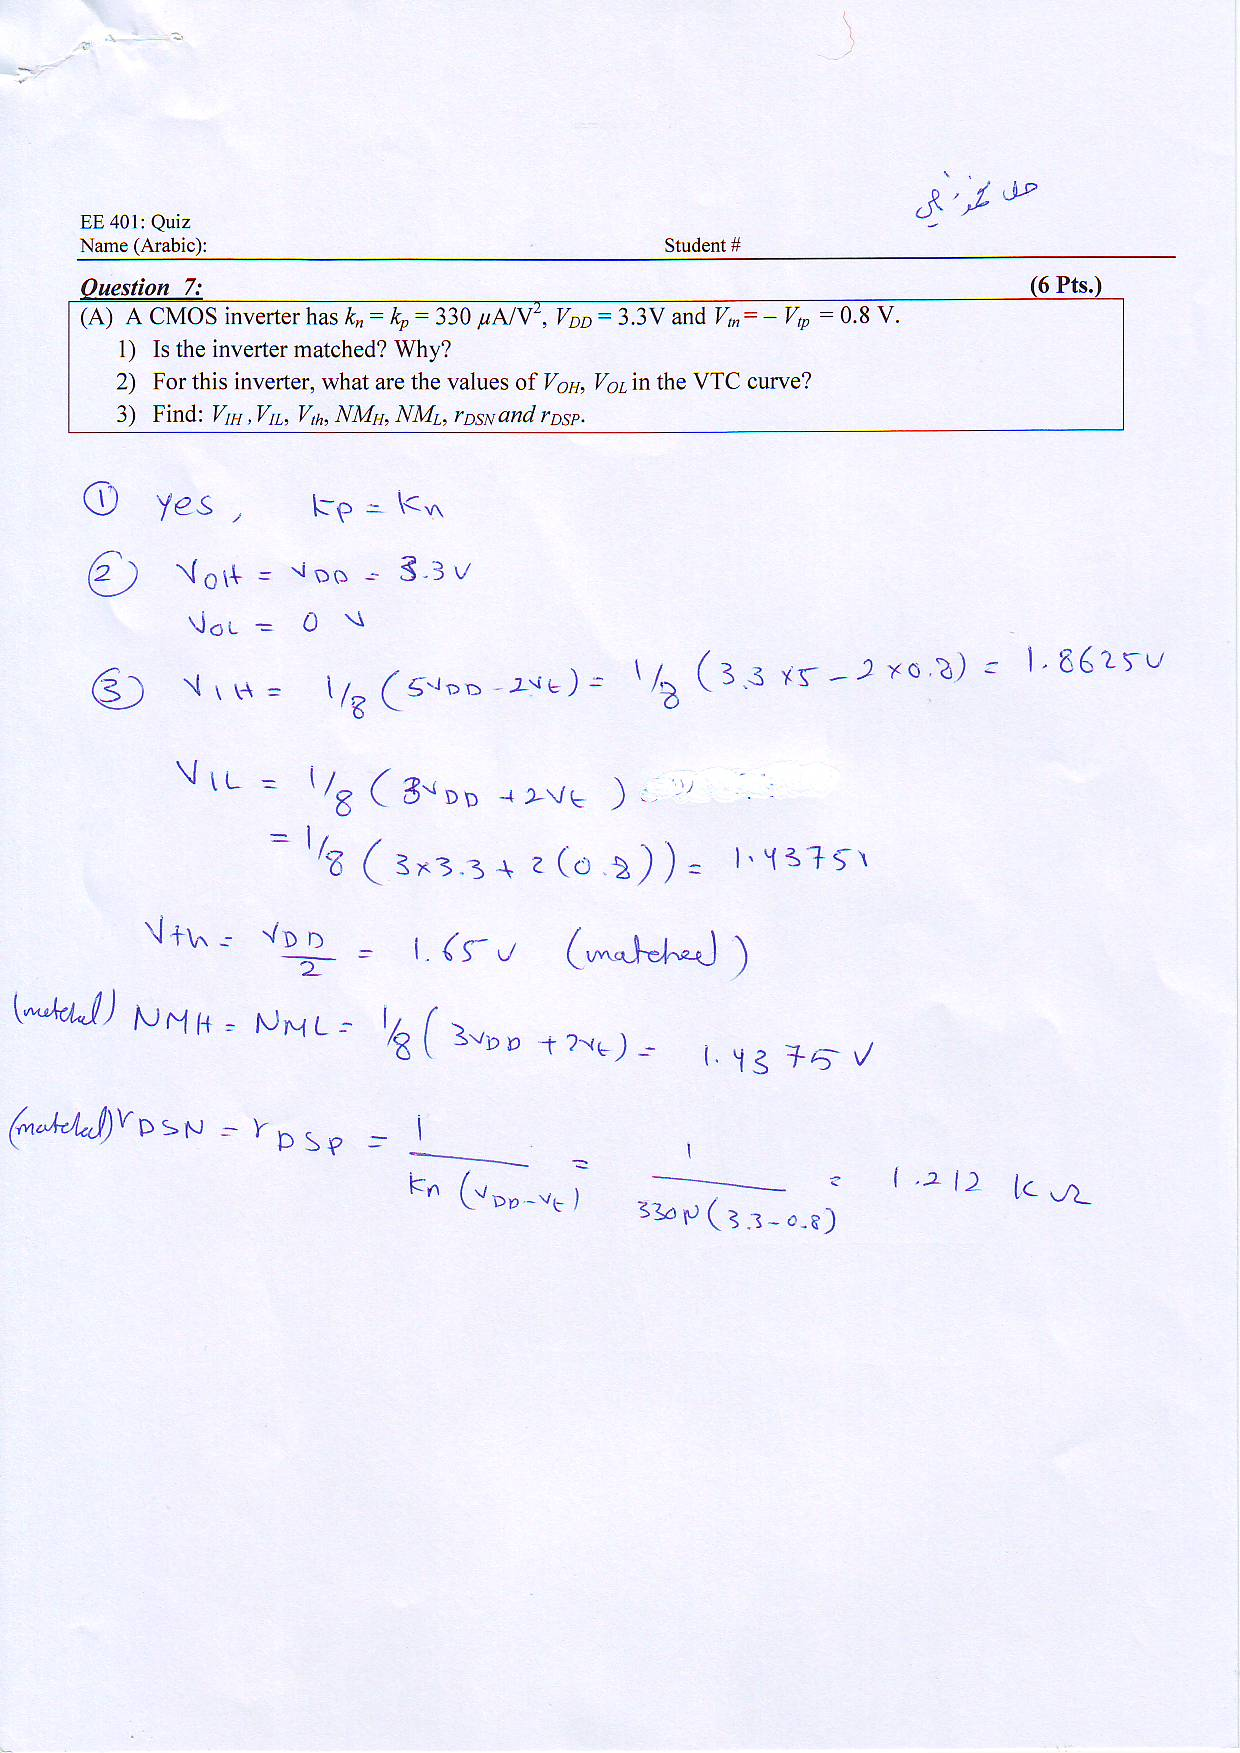 حل نموذجي
EE 401: Quiz
Name (Arabic): Student #
Question 7: (6 Pts.)
(A) A CMOS inverter has kn = kp = 330 μA/V², VDD = 3.3V and Vtn = – Vtp = 0.8 V.
1) Is the inverter matched? Why?
2) For this inverter, what are the values of VOH, VOL in the VTC curve?
3) Find: VIH , VIL, Vth, NMH, NML, rDSN and rDSP.
① yes, kp = kn
② VOH = VDD = 3.3 V
VOL = 0 V
③ VIH = 1/8 (5VDD - 2Vt) = 1/8 (3.3 x5 - 2 x0.8) = 1.8625V
VIL = 1/8 (3VDD + 2Vt)
= 1/8 (3x3.3 + 2(0.8)) = 1.4375V
Vth = VDD/2 = 1.65 V (matched)
(matched) NMH = NML = 1/8 (3VDD + 2Vt) = 1.4375 V
(matched) rDSN = rDSP = 1/kn (VDD-Vt) = 1/330μ(3.3-0.8) = 1.212 KΩ